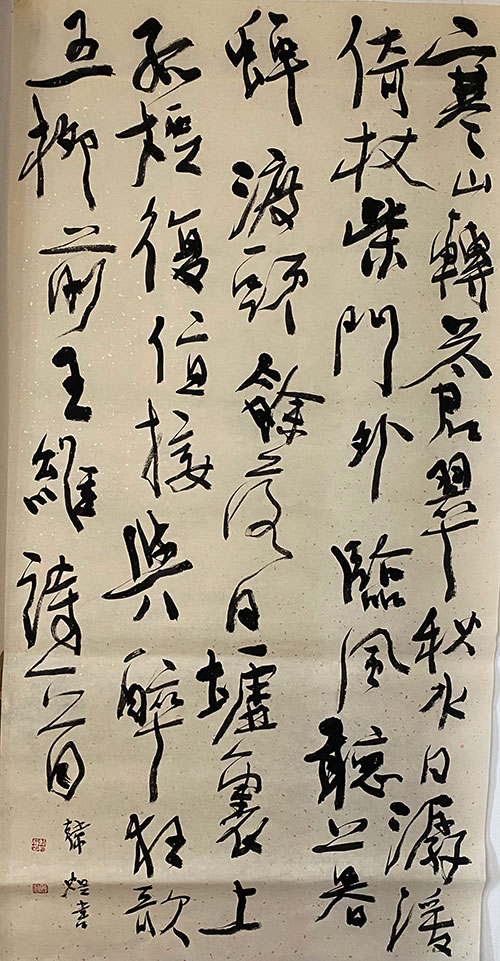 寒山轉蒼翠秋水日潺湲
倚杖柴門外臨風聽暮
蟬渡頭餘落日墟裏上
孤煙復值接輿醉狂歌
五柳前王維詩一首
韓 書